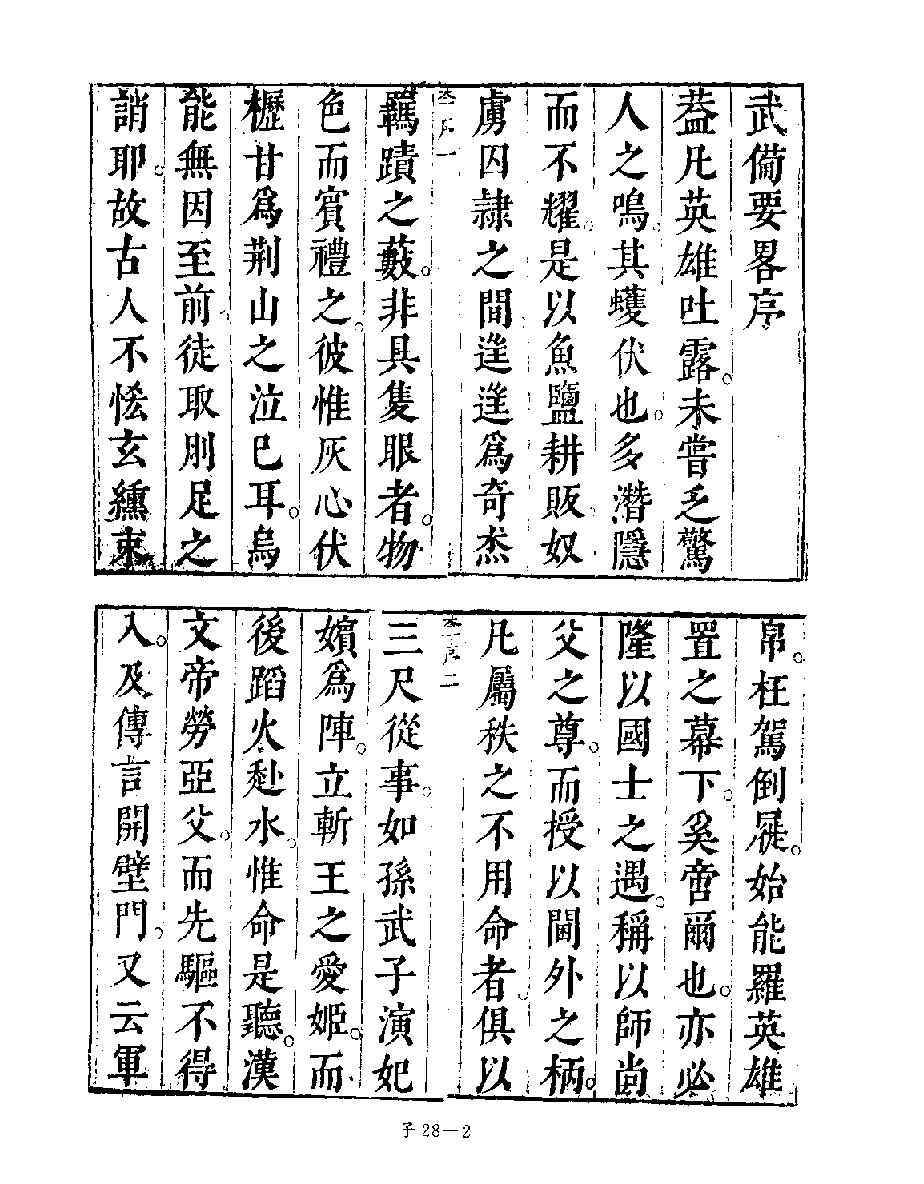 武備要畧序
葢凡英雄吐露。未嘗乏驚
人之鳴。其蠖伏也。多潛隱
而不耀。是以魚鹽耕販奴
虜囚隷之間。逩逩爲奇杰
序一
羈蹟之藪。非具隻眼者。物
色而賓禮之。彼惟灰心伏
櫪甘爲荆山之泣巳耳。烏
能無因至前。徒取刖足之
誚耶。故古人不恡玄纁束
帛。枉駕倒屣。始能羅英雄
置之幕下。奚啻爾也。亦必
隆以國士之遇。稱以師尙
父之尊。而授以閫外之柄。
凡屬秩之不用命者。俱以
序二
三尺從事。如孫武子演妃
嬪爲陣。立斬王之愛姬。而
後蹈火赴水。惟命是聽。漢
文帝勞亞父。而先驅不得
入。及傳言開壁門。又云軍
子28—2